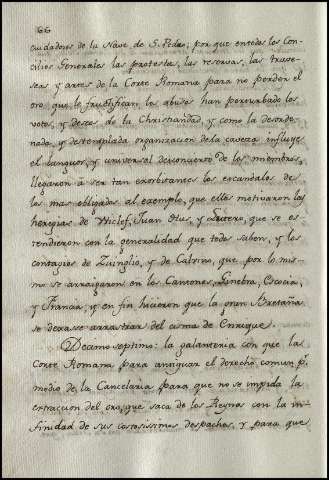 66
ciudadores de la Nave de S. Pedro; por que en todos los Con-
cilios Generales las protestas, las reservas, las trave-
seas y artes de la Corte Romana para no perder el
oro, que le fructifican los abusos han perturbado los
votos, y deseos de la Christiandad, y como la desorde-
nada, y destemplada organizacion de la caveza influye
el languor, y universal desconcierto de los miembros,
llegaron à ser tan exorbitantes los escandalos de
los mas obligados al exemplo, que ellos motivaron las
heregias de Wiclef, Juan Hus, y Lutero, que se es-
tendieron con la generalidad que todos saben, y los
contagios de Zuinglio, y de Calvino, que por lo mis-
mo se arraigaron en los Cantones, Ginebra, Escocia,
y Francia, y en fin hicieron que la gran Bretaña
se dexasse arrastrar del cisma de Enrique.
Decimo septimo: la galanteria con que la
Corte Romana para antiguar el derecho comun pr.
medio de la Cancelaria para que no se impida la
extraccion del oro, que saca de los Reynos con la in-
finidad de sus costosissimos despachos, y para que